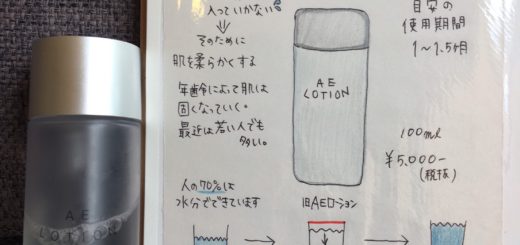 入っていかない
そのために
肌を柔らかくする
年齢によって肌は
固くなっていく。
最近は若い人でも
多い。
人の70%は
水分でできています
AE
LOTION
旧AEローション
目安の
使用期間
1〜1.5ヶ月
100ml
¥5,000-
(税抜)
AE
LOTION